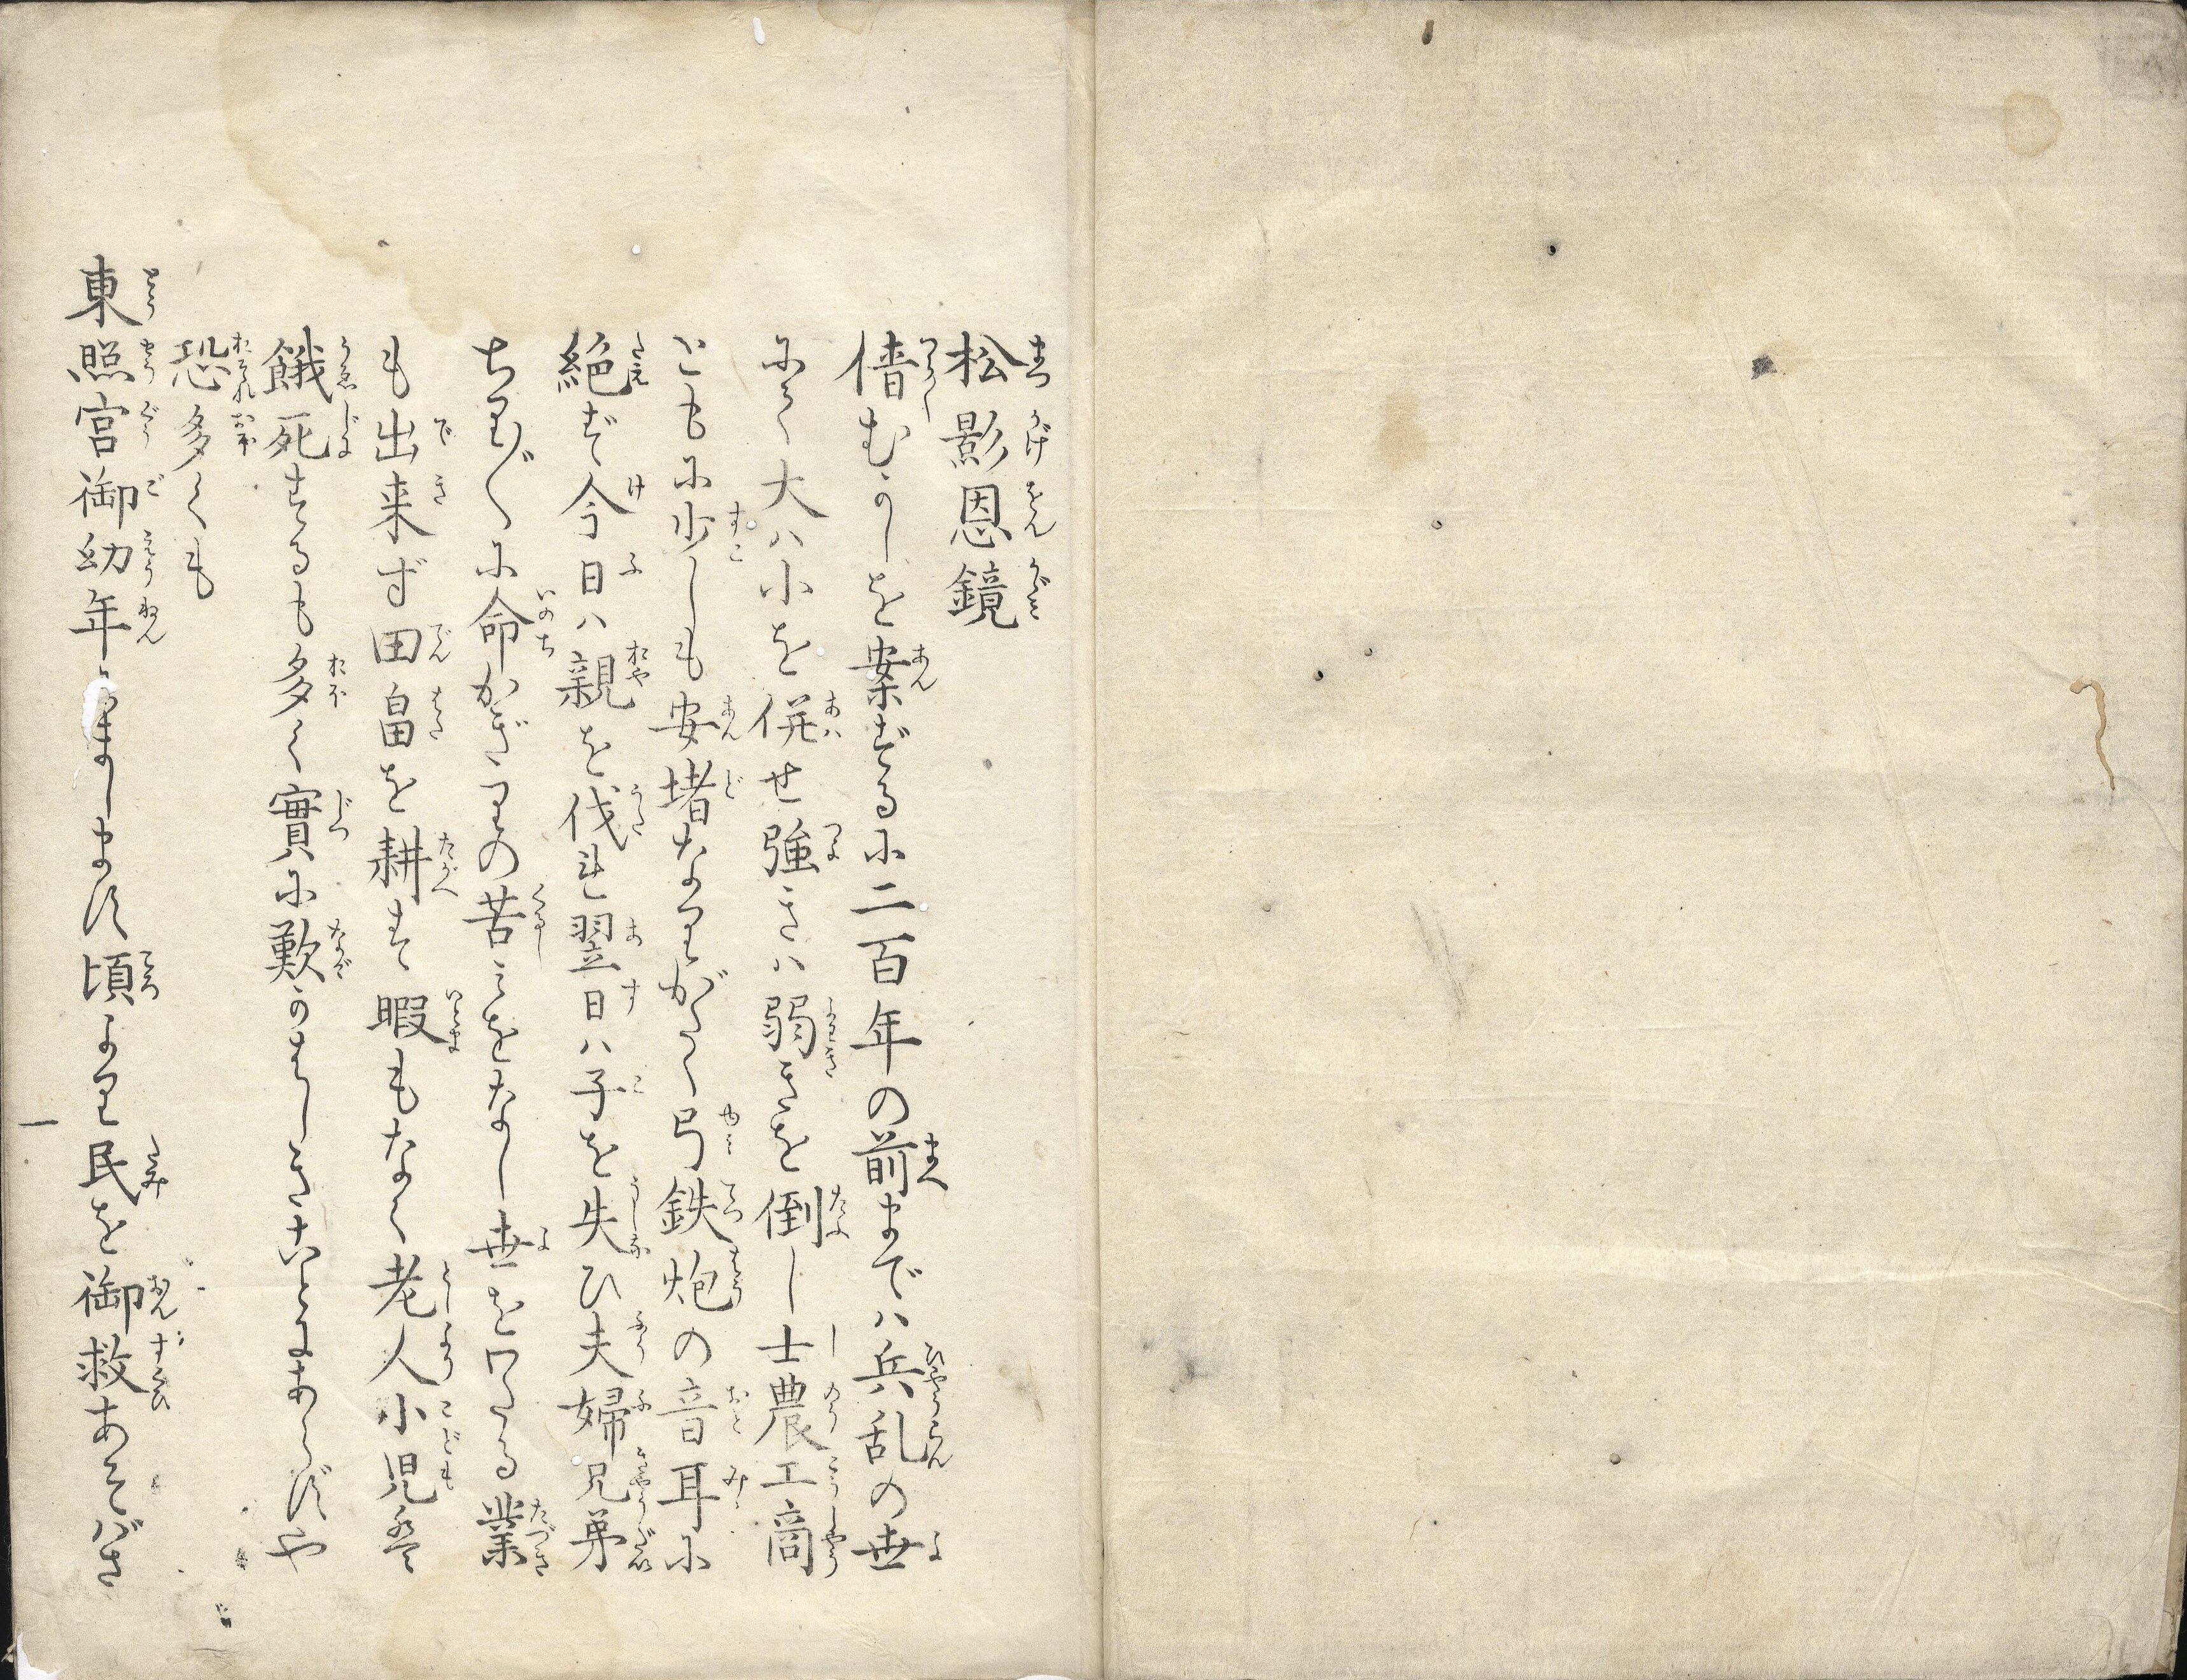 松影恩鏡
偣むかしを案ずるに二百年の前までハ兵乱の世
にて大ハ小を併せ強きハ弱きを倒し士農工商
ともに少しも安堵なりがたく弓鉄炮の音耳に
絶ず今日ハ親を伐れ翌日ハ子を失ひ夫婦兄弟
ちり〴〵に命かぎりの苦しみをなし世をわたる業
も出来ず田畠を耕す暇もなく老人小児抔
餓死するも多く實に歎かはしきことにあらずや
恐多くも
東照宮御幼年にまします頃より民を御救あそばさ
一